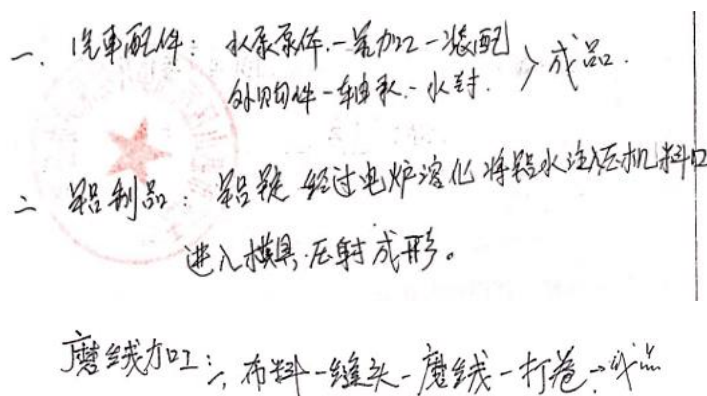 一、汽车配件：水泵泵体-一员加工-装配 > 成品.
外购件-轴承-水封.
二 铝制品：铝锭 经过电炉溶化 将铝水注入压机料口
进入模具 压射成形。
磨绒加工：布料-缝头-磨绒-打卷→成品